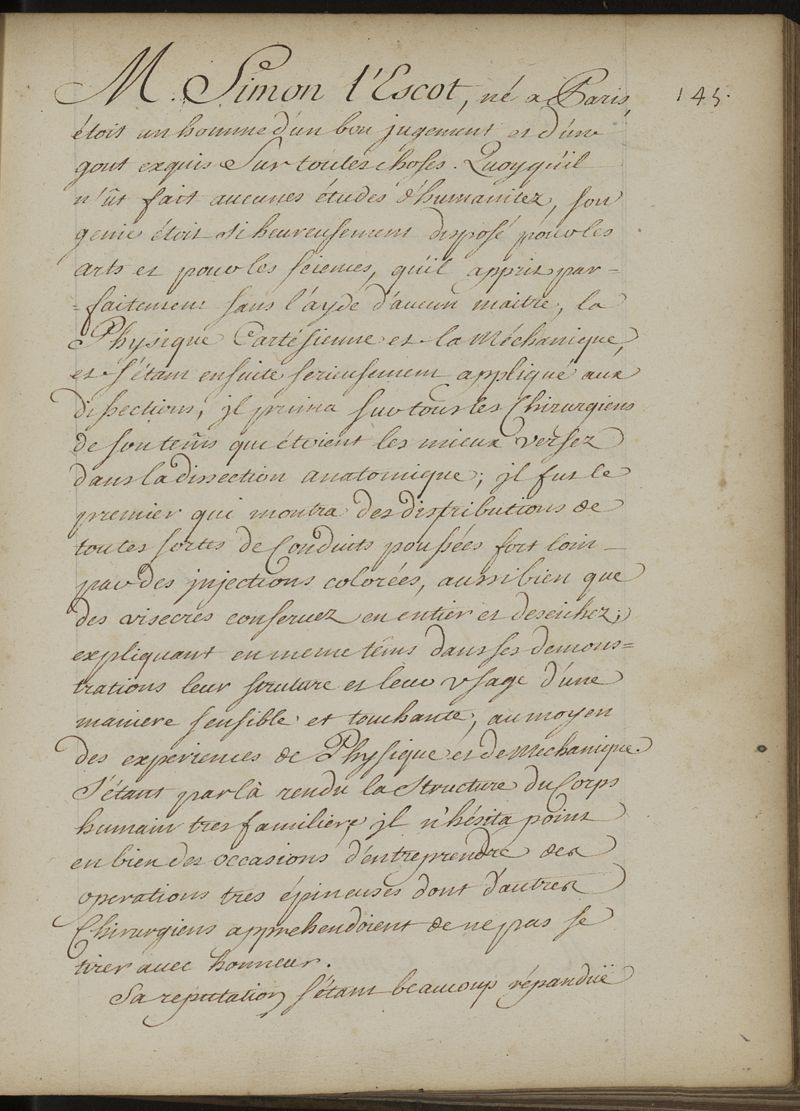 M. Simon l'Escot, né a Paris, 145.
étoit un homme d'un bon jugement et d'un
gout exquis Sur toutes choses. Quoyqu'il
n'ût fait aucunes études d'humanitez, son
genie étoit si heureusement disposé pour les
arts et pour les sciences, qu'il apprit par-
-faitement sans l'ayde d'aucun maitre, la
Physique Cartésienne et la Méchanique,
et s'étant ensuite serieusement appliqué aux
dissections, jl prima sur tous les Chirurgiens
de son tem̃s qui étoient les mieux versez
dans la dissection anatomique; jl fut le
premier qui montra des distributions de
toutes sortes de Conduits poussées fort loin
par des jnjections colorées, aussi bien que
des visceres conservez en entier et deseichez;
expliquant en meme tem̃s dans ses demons=
trations leur struture et leur vsage d'une
maniere sensible et touchante, au moyen
des experiences de Physique et de Mechanique.
S'étant par là rendu la Structure du Corps
humain tres familiere jl n'hésita point
en bien des occasions d'entreprendre des
operations tres épineuses dont d'autres
Chirurgiens apprehendoient de ne pas se
tirer avec honneur.
Sa reputation s'étant beaucoup répanduë